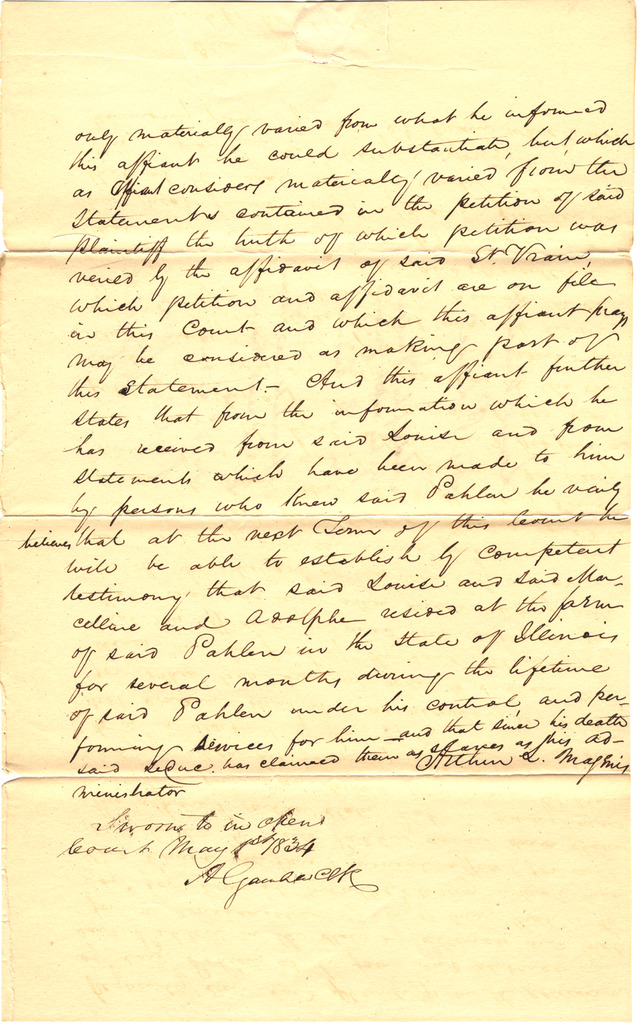 only materially varied from what he informed
this affiant he could substantiate, but, which
as affiant considers materially varied from the
statements contained in the petition of said
Plaintiff the truth of which petition was
veried by the affidavit of said St. Vrain,
which petition and affidavit are on file
in this Court and which this affiant prays
may be considered as making part of
this statement.- And this affiant further
states that from the information which he
has received from said Louise and from
statements which have been made to him
by persons who knew said Pahlen he verily
believes that at the next Term of this Court he
will be able to establish by competent
testimony that said Louise and said Mar-
celline and Adolphe resided at the farm
of said Pahlen in the State of Illinois
for several months during the lifetime
of said Pahlen under his control, and per-
forming services for him - and that since his death
said LeDuc has claimed them as slaves as his ad-
ministrator
Arthur L. Magenis
Sworn to in open
Court May 1st 1834
A Gamble Clk